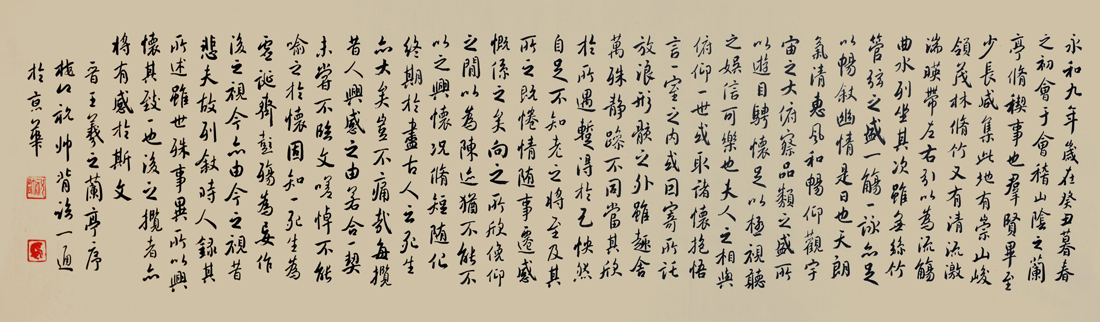 永和九年歲在癸丑暮春
之初會于會稽山陰之蘭
亭脩禊事也羣賢畢至
少長咸集此地有崇山峻
領茂林脩竹又有清流激
湍暎帶左右引以為流觴
曲水列坐其次雖無絲竹
管弦之盛一觴一詠亦足
以暢敘幽情是日也天朗
氣清惠風和暢仰觀宇
宙之大俯察品類之盛所
以遊目騁懷足以極視聽
之娛信可樂也夫人之相與
俯仰一世或取諸懷抱悟
言一室之內或因寄所託
放浪形骸之外雖趣舍
萬殊靜躁不同當其欣
於所遇暫得於己怏然
自足不知老之將至及其
所之既惓情隨事遷感
慨係之矣向之所欣俛仰
之閒以為陳迹猶不能不
以之興懷況脩短隨化
終期於盡古人云死生
亦大矣豈不痛哉每攬
昔人興感之由若合一契
未嘗不臨文嗟悼不能
喻之於懷固知一死生為
虛誕齊彭殤為妄作
後之視今亦由今之視昔
悲夫故列敘時人錄其
所述雖世殊事異所以興
懷其致一也後之攬者亦
將有感於斯文
晉王羲之蘭亭序
山祝帅背一通
於京華